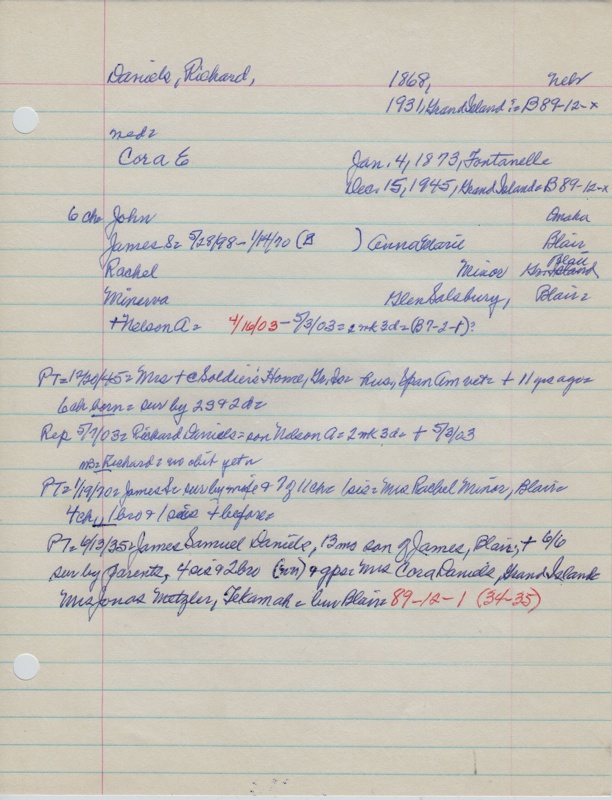 Daniels, Richard, 1868, Nebr
1931, Grand Island?= B89-12-x
med=
Cora E Jan. 4, 1873, Fontanelle
Dec. 15, 1945, Grand Island= B89-12-x
6 ch= John Omaha
James S= 5/28/98-1/14/70 (B ) Anna Marie Blair
Rachel Minor Blair
Minerva Glen Salsbury, Blair=
+Nelson A= 4/16/03-5/3/03= 2 mk 3d= (B7-2-8)?
PT=12/20/45= Mrs + @ Soldier's Home, Gr. Is= hus, Span Am vet= + 11 yrs ago=
6 ch born= sur by 2s & 2d=
Rep 5/7/03= Richard Daniels= son Nelson A= 2 mk 3d= + 5/3/03
MB= Richard= no obit yet=
PT=1/19/70= James S= sur by wife & 7 of 11 ch= 1 sis= Mrs Rachel Minor, Blair=
4 ch, 1 bro & 1 sis + before=
PT=6/13/35= James Samuel Daniels, 13 mo son of James, Blair, + 6/6
sur by parents, 4 sis & 2 bro & gps= Mrs Cora Daniels, Grand Island &
Mrs Jonas Metzler, Tekamah= bur Blair= 89-12-1 (34-35)